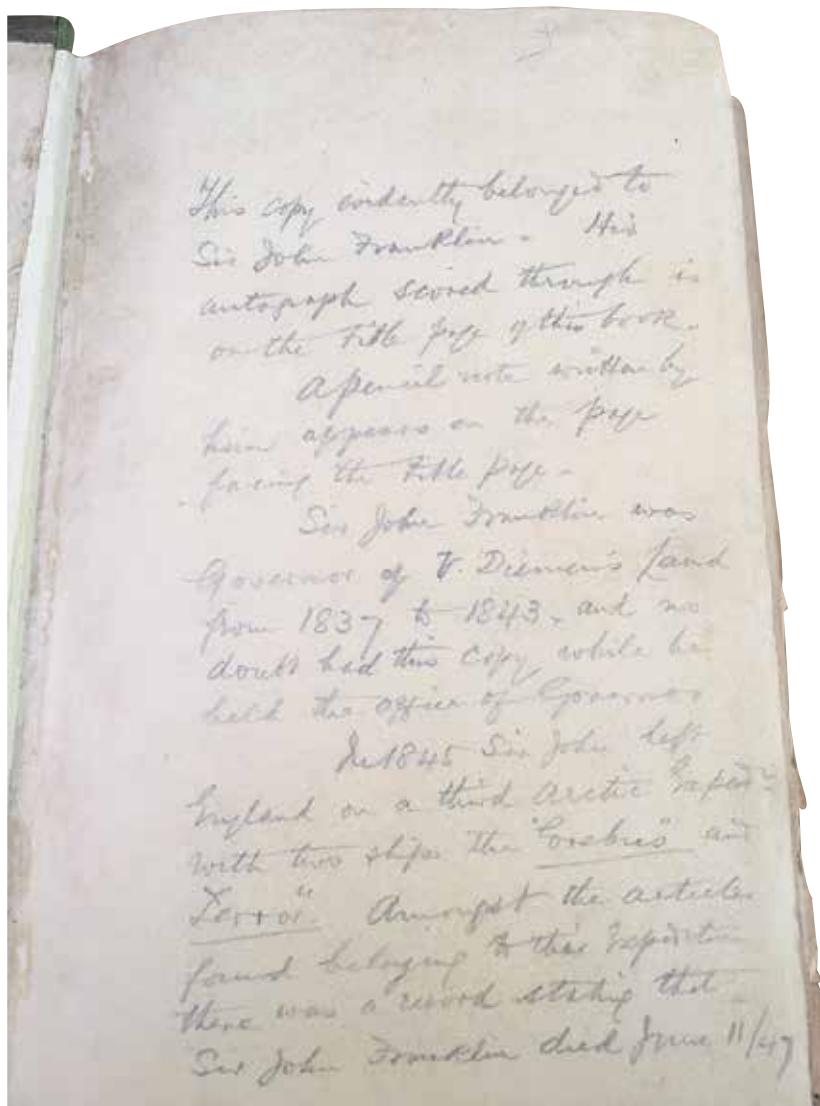 This copy evidently belonged to
Sir John Franklin. His
autograph scored through is
on the title page of this book.
A pencil note written by
him appears on the page
facing the title page.
Sir John Franklin was
Governor of V. Diemen's Land
from 1837 to 1843, and no
doubt had this copy while he
held the office of Governor
In 1845 Sir John left
England on a third Arctic Expedn
with two ships the "Erebus" and
"Terror". Amongst the articles
found belonging to this Expedition
there was a record stating that
Sir John Franklin died June 11/47